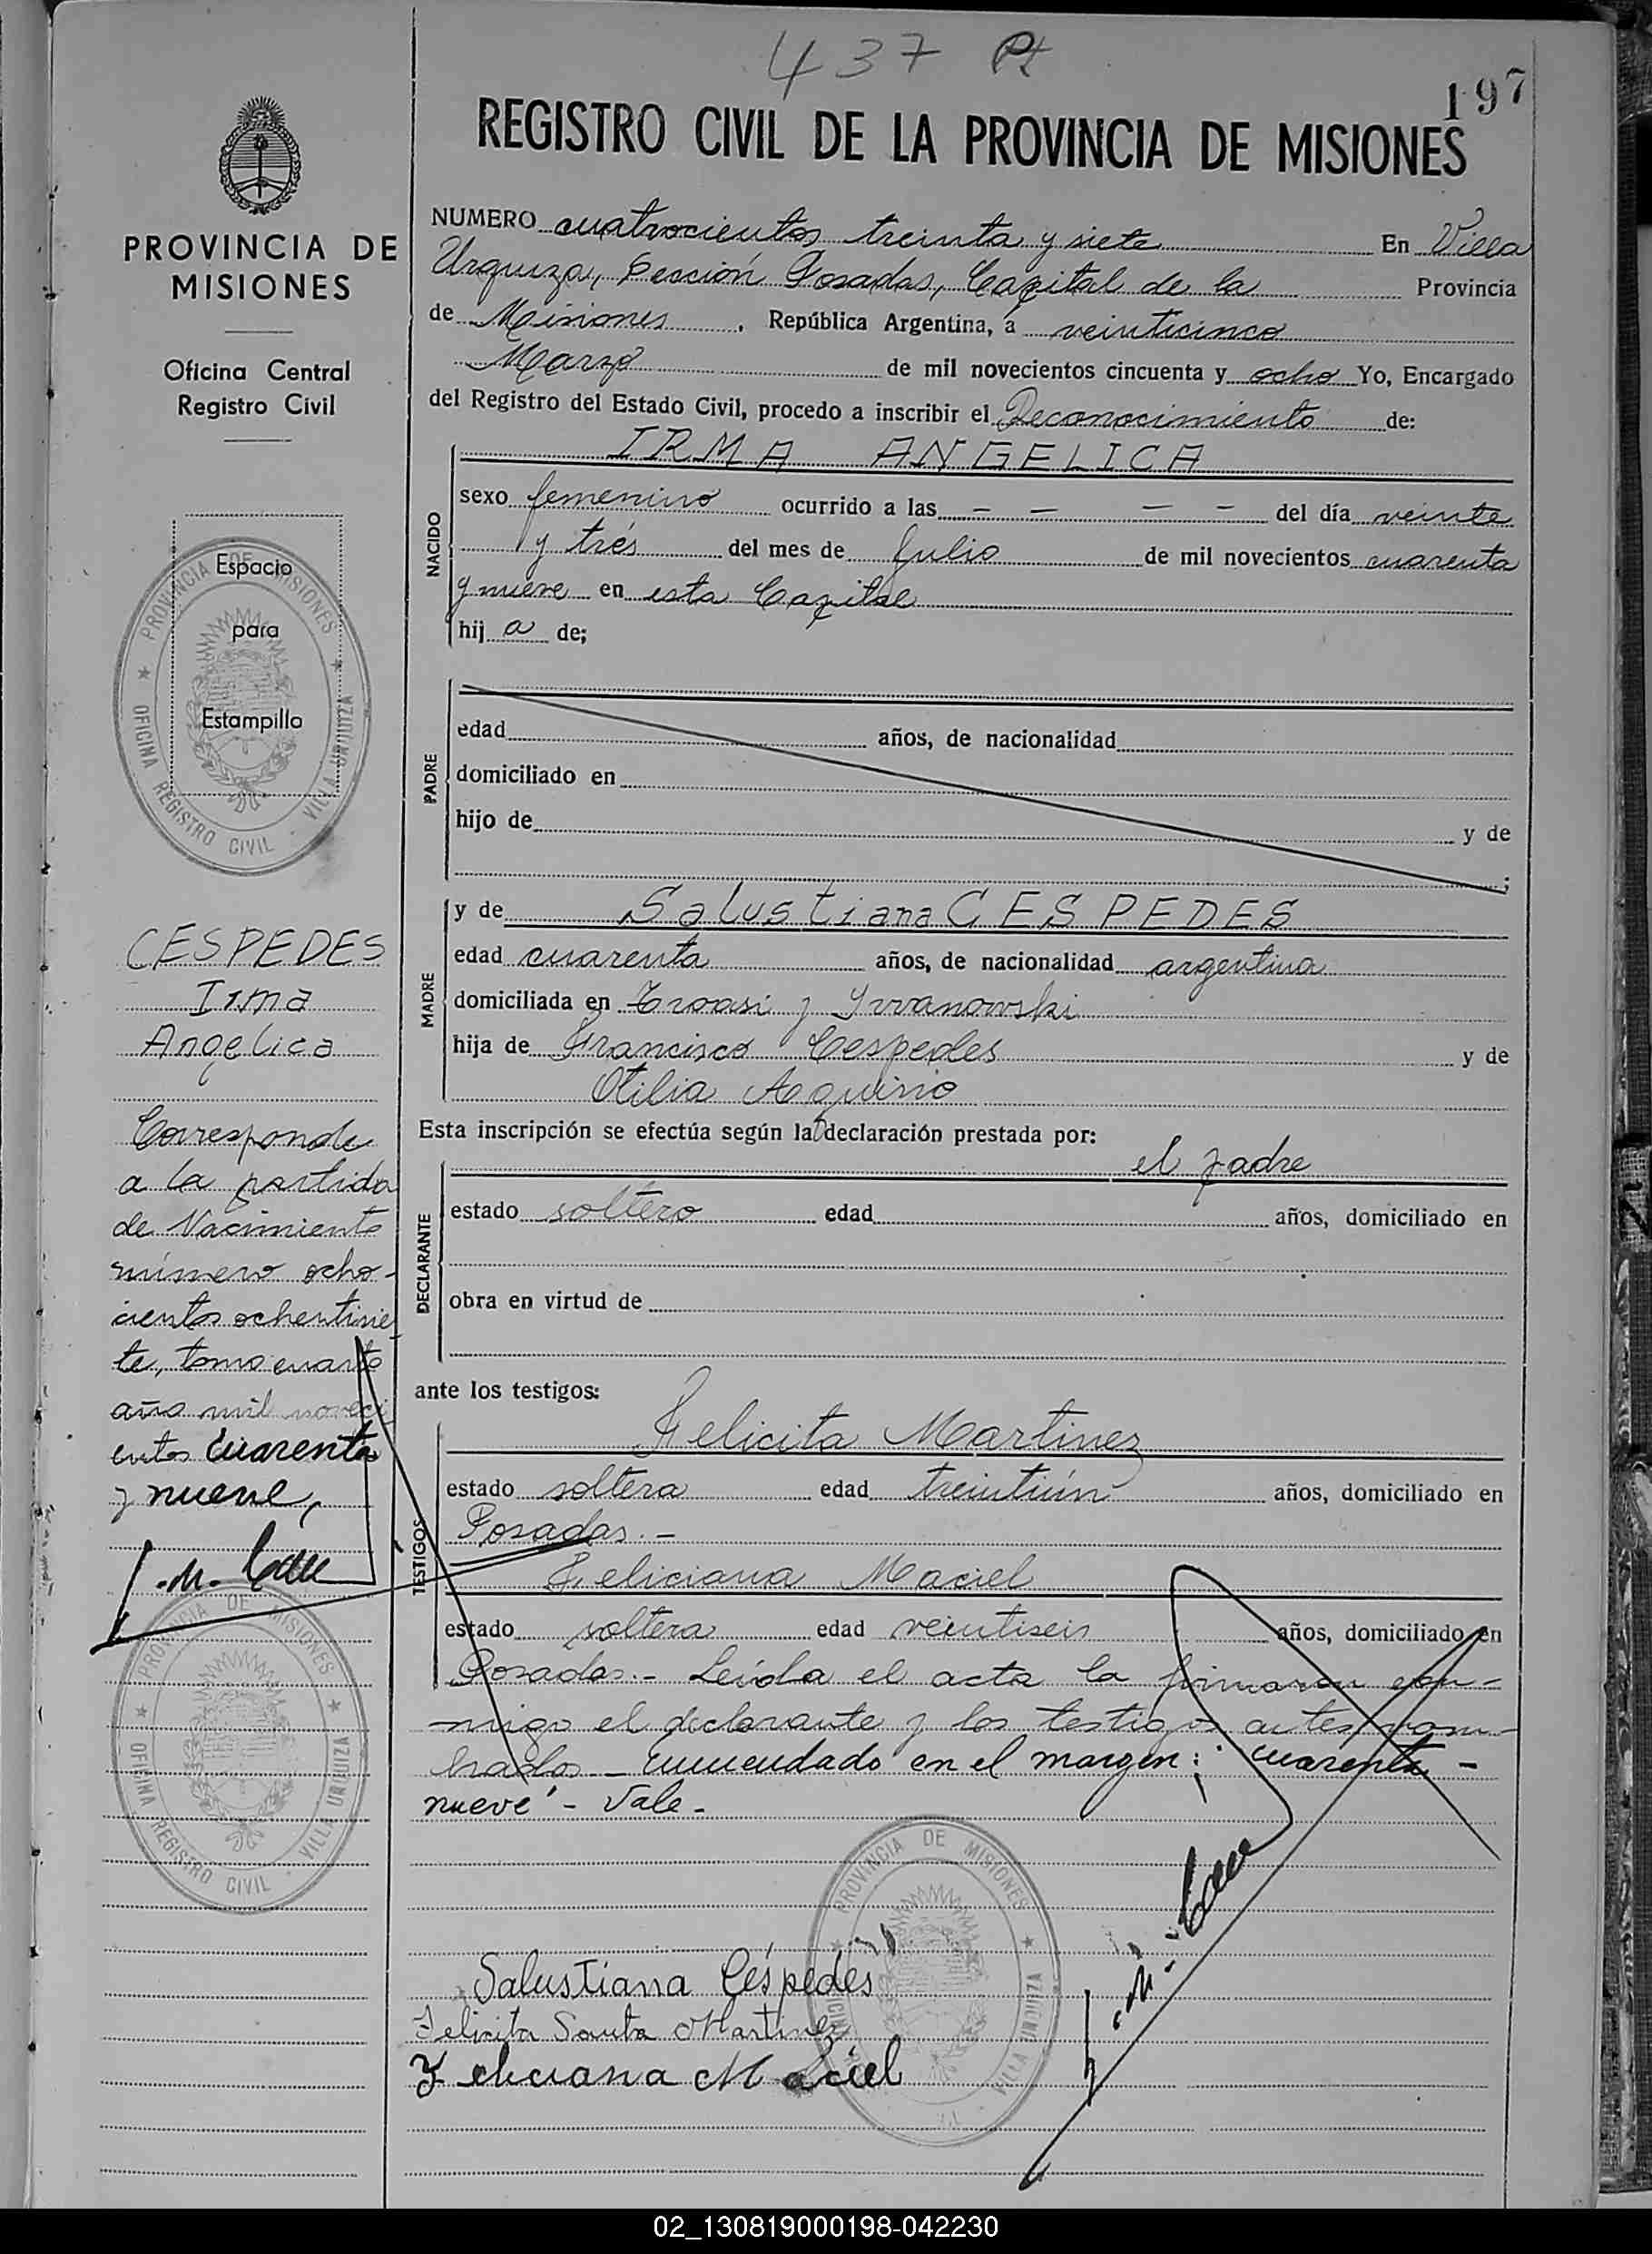 437 Pt
197
REGISTRO CIVIL DE LA PROVINCIA DE MISIONES
PROVINCIA DE
MISIONES
Oficina Central
Registro Civil
Espacio
para
Estampilla
PROVINCIA DE MISIONES
OFICINA REGISTRO CIVIL - VILLA URQUIZA
CESPEDES
Irma
Angelica
Corresponde
a la partida
de Nacimiento
número ocho-
cientos ochentisie
te, tomo cuarto
año mil noveci
entos cuarenta
y nueve,
PROVINCIA DE MISIONES
OFICINA REGISTRO CIVIL - VILLA URQUIZA
NUMERO cuatrocientos treinta y siete En Villa
Urquiza, Sección Posadas, Capital de la Provincia
de Misiones, República Argentina, á veinticinco
Marzo de mil novecientos cincuenta y ocho Yo, Encargado
del Registro del Estado Civil, procedo a inscribir el Reconocimiento de:
NACIDO
IRMA ANGELICA
sexo femenino ocurrido a las - - - - del día veinte
y tres del mes de Julio de mil novecientos cuarenta
y nueve en esta Capital
hij a de;
PADRE
edad años, de nacionalidad
domiciliado en
hijo de y de
;
MADRE
y de Salustiana CESPEDES
edad cuarenta años, de nacionalidad argentina
domiciliada en Troasi y Yrvanowski
hija de Francisco Cespedes y de
Otilia Aquino
Esta inscripción se efectúa según la declaración prestada por:
DECLARANTE
el padre
estado soltero edad años, domiciliado en
obra en virtud de
ante los testigos:
TESTIGOS
Felicita Martinez
estado soltera edad treintiún años, domiciliado en
Posadas.-
Feliciana Maciel
estado soltera edad veintiseis años, domiciliado en
Posadas.- Leída el acta la firmaron con-
migo el declarante y los testigos antes nom-
brados - Enmendado en el margen: "cuarenta -
nueve" - Vale -
Salustiana Céspedes
Felicita Santa Martinez
Feliciana Maciel
PROVINCIA DE MISIONES
VILLA URQUIZA
02_130819000198-042230